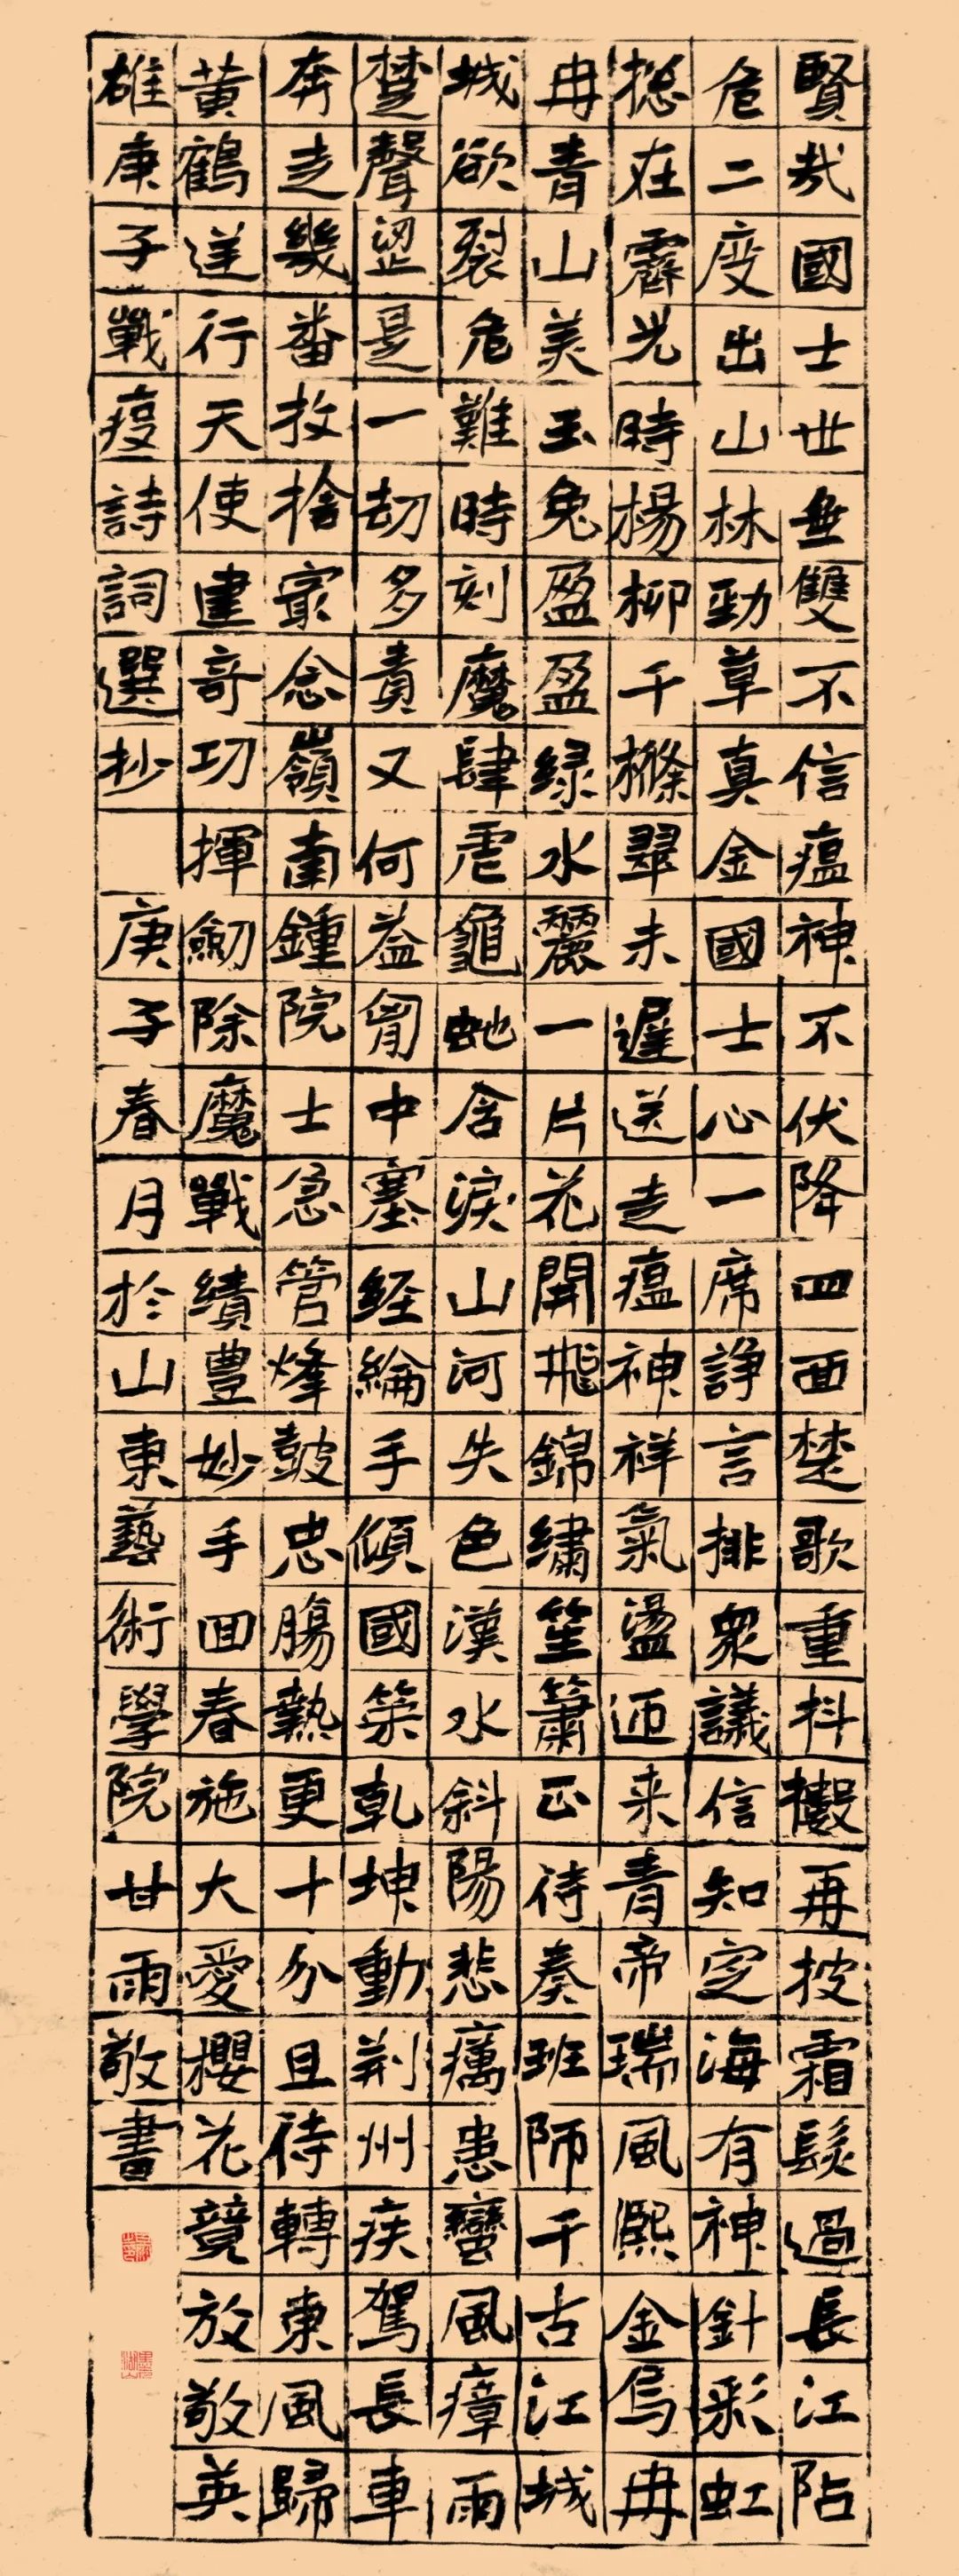 賢哉國士世無雙不信瘟神不伏降四面楚歌重抖擻再披霜髮過長江阽
危二度出山林勁草真金國士心一席諍言排衆議信知定海有神針彩虹
總在霽光時楊柳千條翠未遲送走瘟神祥氣盪迎来青帝瑞風熙金烏冉
冉青山美玉兔盈盈綠水麗一片花開飛錦繡笙簫正待奏班師千古江城
城欲裂危難時刻魔肆虐龜虵含淚山河失色漢水斜陽悲癘患蠻風瘴雨
楚聲澀是一劫多責又何益胷中塞經綸手傾國築乾坤動荆州疾駕長車
奔走幾番救捨家念嶺南鍾院士急管烽鼓忠腸熱更十分且待轉東風歸
黃鶴送行天使建奇功揮劒除魔戰績豐妙手回春施大愛櫻花竟放敬英
雄庚子戰疫詩詞選抄 庚子春月於山東藝術學院甘雨敬書